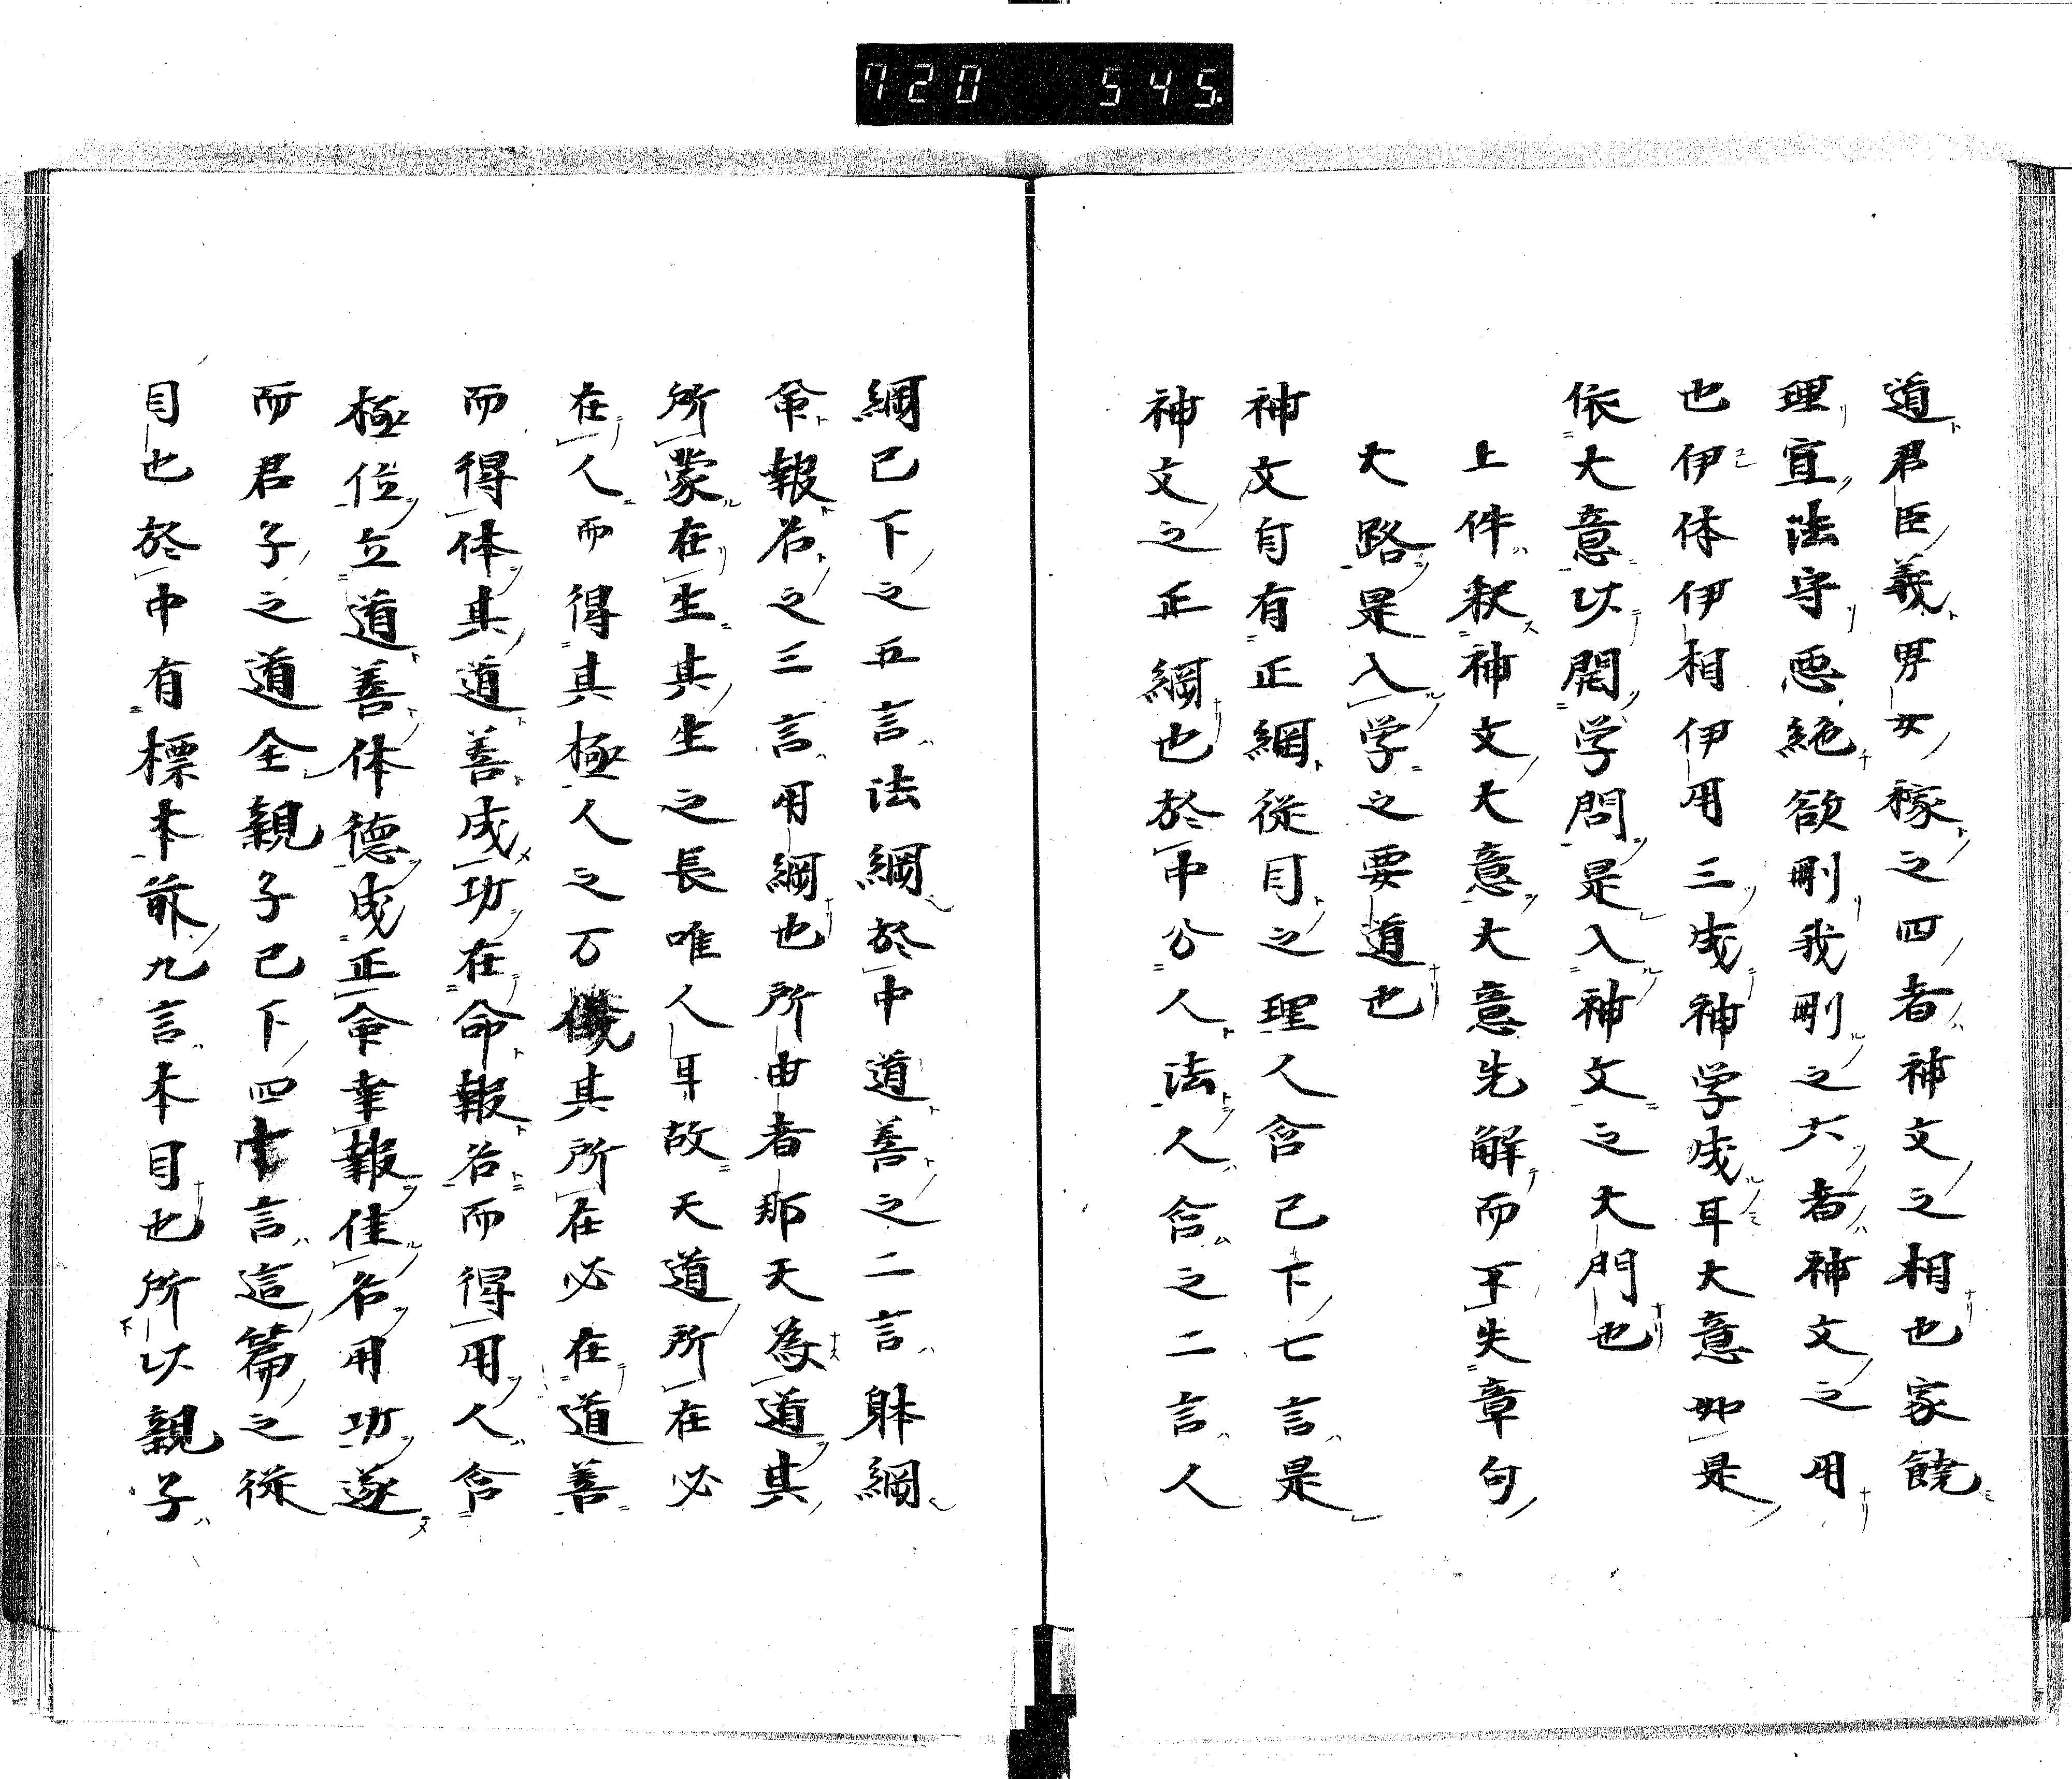 720 545
道君臣義男女稼之四者神文之相也家饒
理宜法守悪絶欲刪我刪之六者神文之用
也伊体伊相伊用三成神学成耳大意如是
依大意以開学問是入神文之大門也
上件釈神文大意大意先解而不失章句
大路是入学之要道也
神文自有正綱従目之理人含已下七言是
神文之正綱也於中分人法人含之二言人
綱已下之五言法綱於中道善之二言躰綱
命報名之三言用綱也所由者那天為道其
所蒙在生其生之長唯人耳故天道所在必
在人而得其極人之万機其所在必在道善
而得体其道善成功在命報名而得用人含
極位立道善体徳成正命幸報佳名用功遂
而君子之道全親子已下四十言這篇之従
目也於中有標本前九言本目也所以親子